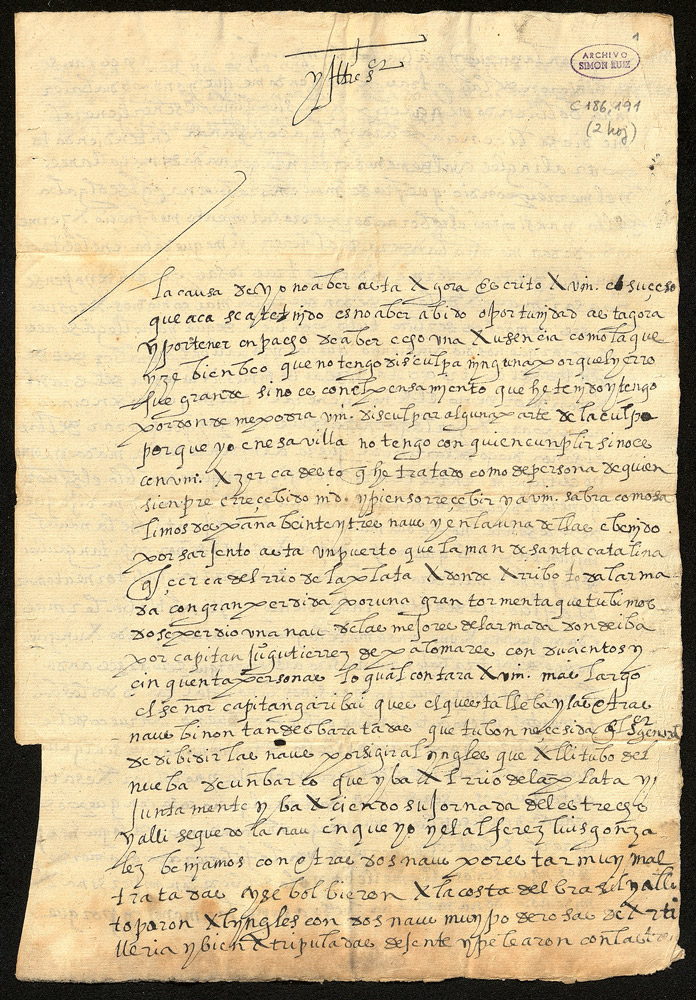 ARCHIVO
SIMON RUIZ
C 186, 191
(2 hoj)
yllte sor
la causa de yo no aber asta Agora escrito A vm. el suçeso
que aca se a tenido es no aber abido oportunidad asta gora
y por tener en paçgo de aber echo una Ausencia como la que
yze bien beo que no tengo disculpa ninguna porque el yerro
fue grande sino es con el pensamiento que he tenido y tengo
por donde me podra vm. disculpar alguna parte de la culpa
porque yo en esa villa no tengo con quien cunplir sino es
con vm. Azerca desto q he tratado como de persona de quien
sienpre e rreçebido md. y pienso rreçebir ya vm. sabra como sa
limos despana beinte y tres naus y en la una dellas e benido
por sarjento asta un puerto que llaman de santa catalina
q es cerca del rrio de la plata Adonde Arribo toda la rma
da con gran perdida por una gran tormenta que tubimos
dose perdio una nau de las mejores del armada donde iba
por capitan juo gutierrez de palomares con ducientos y
cinquenta personas lo qual contara A vm. mas largo
el señor capitan garibai que es el questa lleba y las otras
naus binon tan desbaratadas que tubo neçesidad el sor general
de dibidir las naus por sigir al yngles que Alli tubo del
nueba de un barco que yba Al rrio de la plata y
juntamente yba Aciendo su jornada del estrecho
y alli se quedo la nau en que yo y el alferez luis gonza
lez beniamos con otras dos naus por estar muy mal
tratadas y se bolbieron A la costa del brasil y alli
toparon Al yngles con dos naus muy poderosas de Arti
lleria y bien Atripuladas de jente y pelearon con las tres